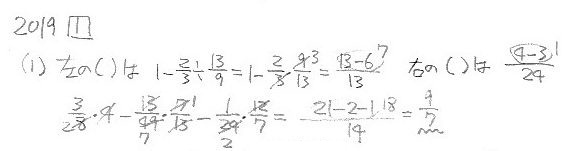 2019 1
(1) 左の( )は 1-2/3÷13/9=1-2/3·9 3/13=13-6 7/13 右の( )は 4-3 1/24
3/28·4-13/49 7·7 1/13-1/24 2·12/7=21-2-1 18/14=9/7